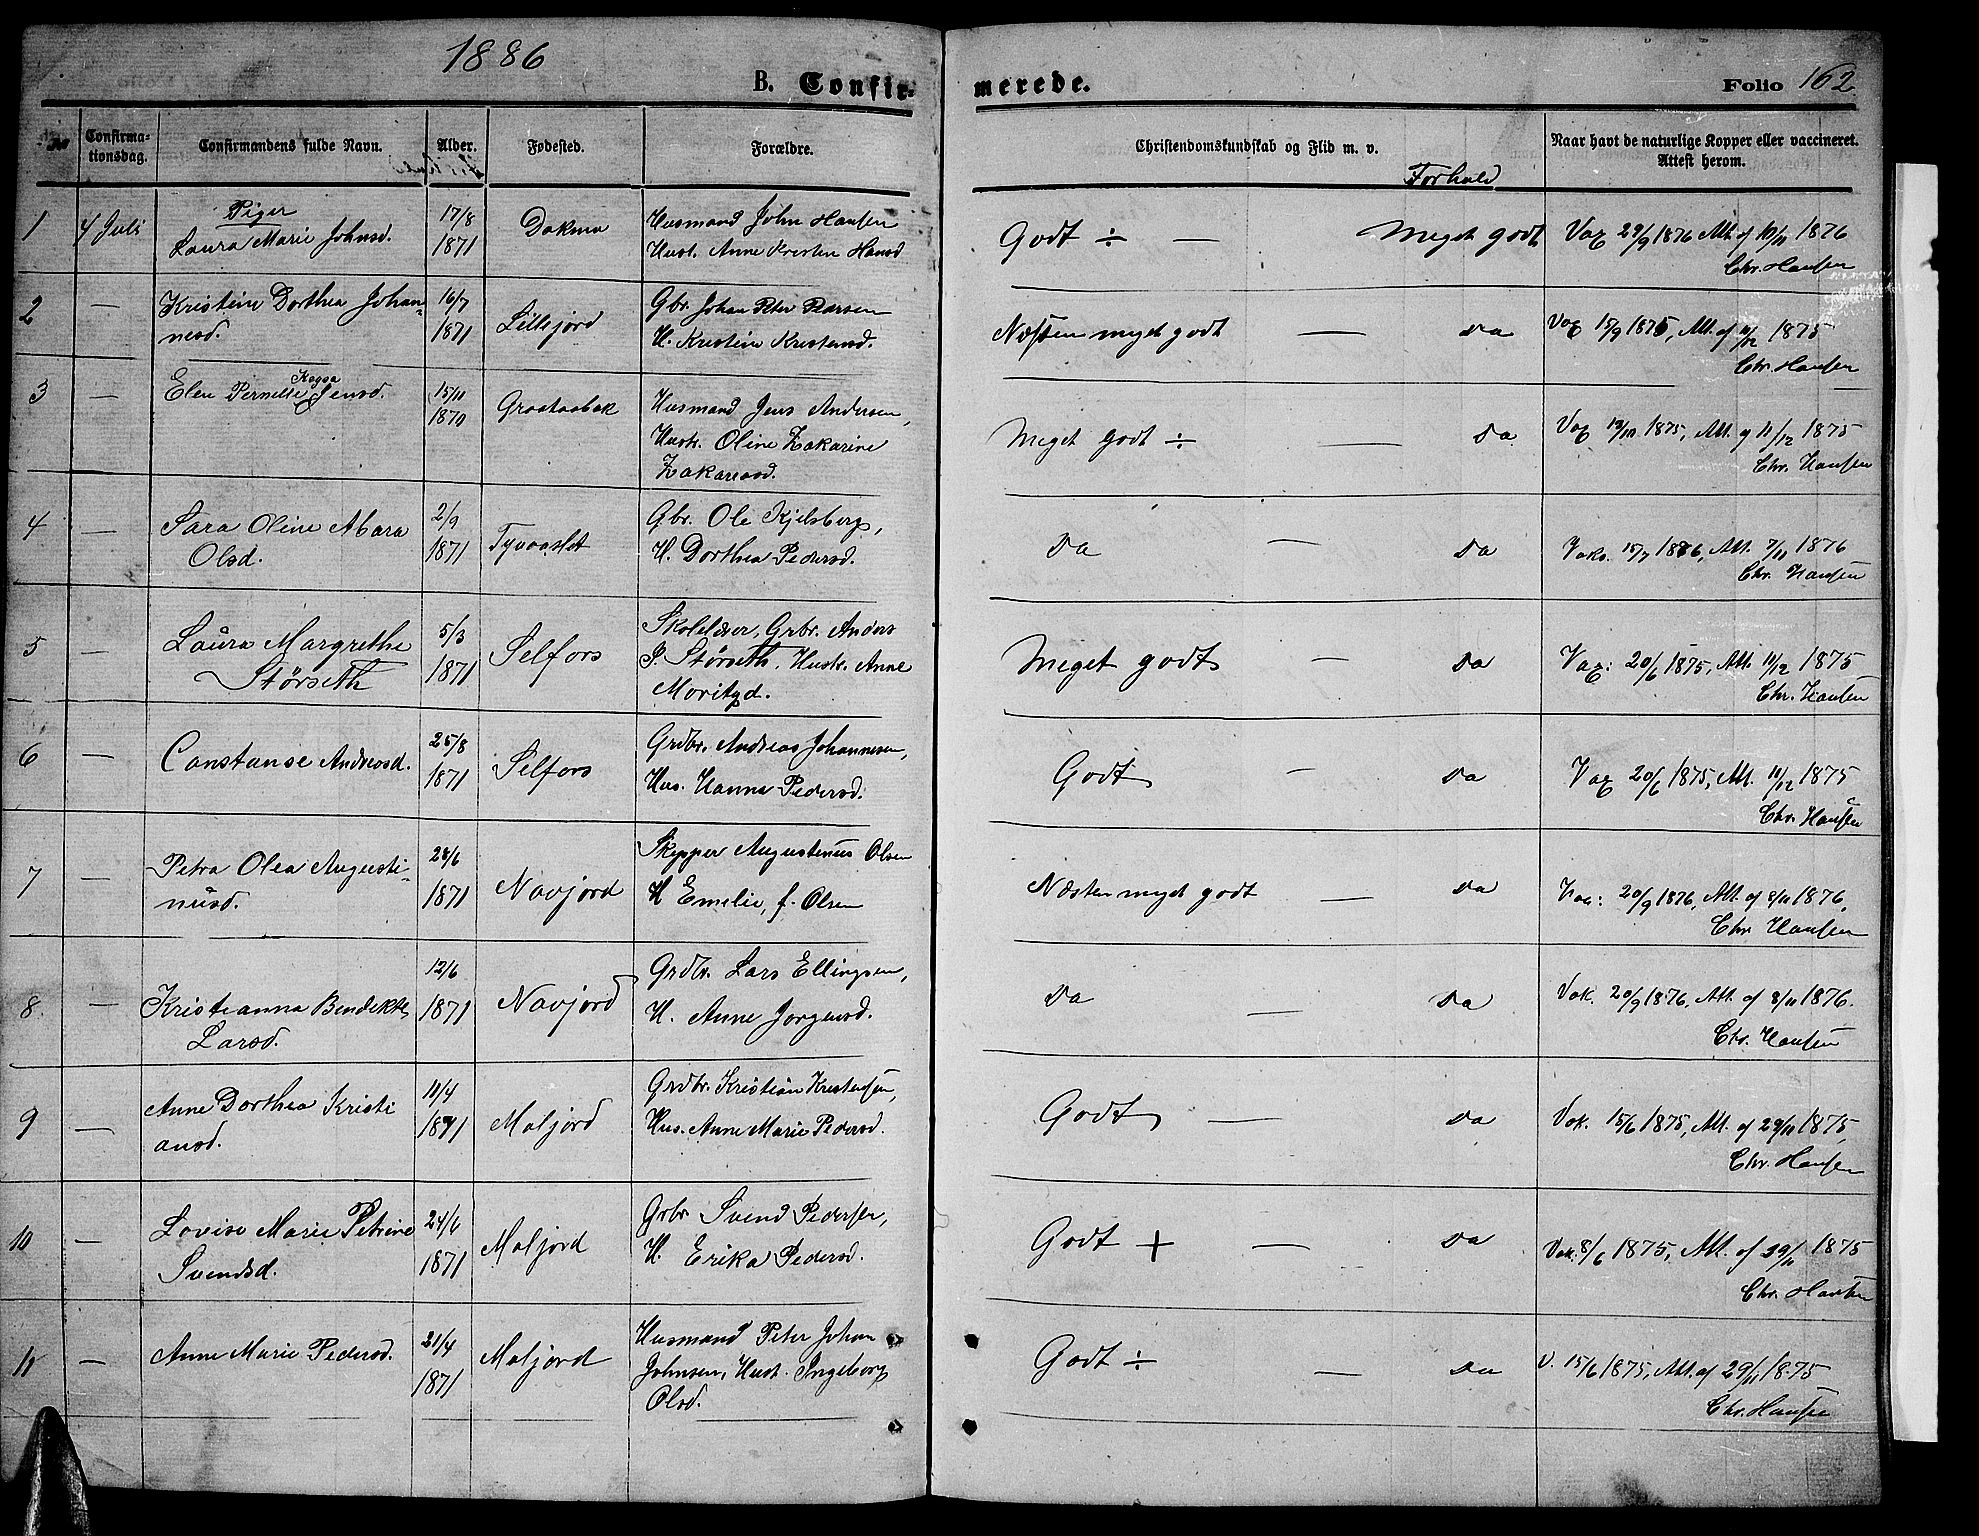 1886
B. Confir-
merede.
Folio 162
Confirma-
tionsdag.
Confirmandens fulde Navn.
Alder.
Fødested.
Forældre.
Christendomskundskab og Flid m. v.
Forhold
Naar havt de naturlige Kopper eller vaccineret.
Attest herom.
Piger
1 4 Juli Laura Marie Johnsd. 17/8 1871 Husmand John Hansen
Hust. Anne Kristen Hansd
Godt ÷ — Meget godt Vax 29/9 1876 Att. af 10/11 1876
Chr. Hansen
2 — Kristine Dorthea Johan-
nesd. 16/7 1871 Lillejord Gbr. Johan Peter Pedersen
H. Kristine Kristensd.
Næsten meget godt — Da Vax 15/9 1875, Att. af 11/12 1875
Chr. Hansen
3 — Elen Pernelle Kajsa Jensd. 15/11 1870 Graataabak Husmand Jens Andersen,
Hustr. Oline Zakarine
Zakariasd.
Meget Godt ÷ — Da Vax 1875, Att. af 11/12 1875
Chr. Hansen
4 — Sara Oline Mara
Olsd. 2/9 1871 Gbr. Ole Kjelsberg,
H. Dorthea Pedersd.
Da — Da Vaks. 15/7 1876, Att. 7/11 1876
Chr. Hansen
5 — Laura Margrethe
Størseth 5/3 1871 Selfors Skolelærer, Grbr. Anders
P. Størseth, Hustr. Anne
Moritzd.
Meget godt — Da Vax: 20/6 1875, Att. 11/12 1875
Chr. Hansen
6 — Constanse Andreasd. 25/8 1871 Selfors Grdbr. Andreas Johannesen,
Hus. Hanna Pedersd.
Godt — Da Vax 20/6 1875, Att. 11/12 1875
Chr. Hansen
7 — Petra Olea Augusti-
nusd. 28/6 1871 Navjord Skipper Augustinus Olsen
H Emelie, f. Olsen
Næsten meget godt — Da Vac: 20/9 1876, Att. af 8/11 1876,
Chr Hansen
8. — Kristianna Bendikte
Larsd. 12/6 1871 Navjord Grdbr. Lars Ellingsen,
H. Anne Jorgensd.
Da — Da Vak. 20/9 1876, Att. af 8/11 1876.
Chr. Hansen
9 — Anne Dorthea Kristi
ansd. 11/4 1871 Maljord Grdbr. Kristian Kristensen,
Hus. Anne Marie Pedersd.
Godt — Da Vak. 15/6 1875, Att. af 29/11 1875,
Chr. Hansen
10 — Lovise Marie Petrine
Svendsd. 24/6 1871 Maljord Grbr Svend Pedersen,
H. Erika Pedersd.
Godt + — Da Vak. 8/6 1875, Att. af 29/11 1875
Chr. Hansen
11 — Anne Marie Pedersd. 21/4 1871 Maljord Husmand Peter Johan
Johnsen, Hust. Ingeborg
Olsd.
Godt ÷ — Da V. 15/6 1875, Att. af 29/11 1875
Chr. Hansen